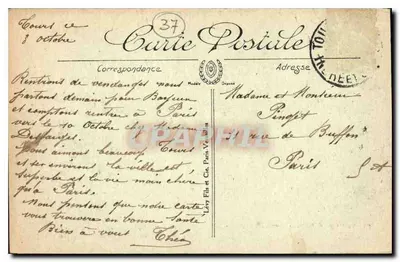 Tours ce
8 octobre
37
Carte Postale
Correspondance
Adresse
Rentrons de vendanges nous
partons demain pour
et comptons rentrer à Paris
vers le 10 octobre chez
Nous aimons beaucoup Tours
et ses environs la ville est
superbe et la vie moins chère
qu'à Paris.
Nous pensons que notre carte
vous trouvera en bonne santé
Bien à vous Théo
Lévy Fils et Cie, Paris
Madame et Monsieur
rue de Buffon
Paris